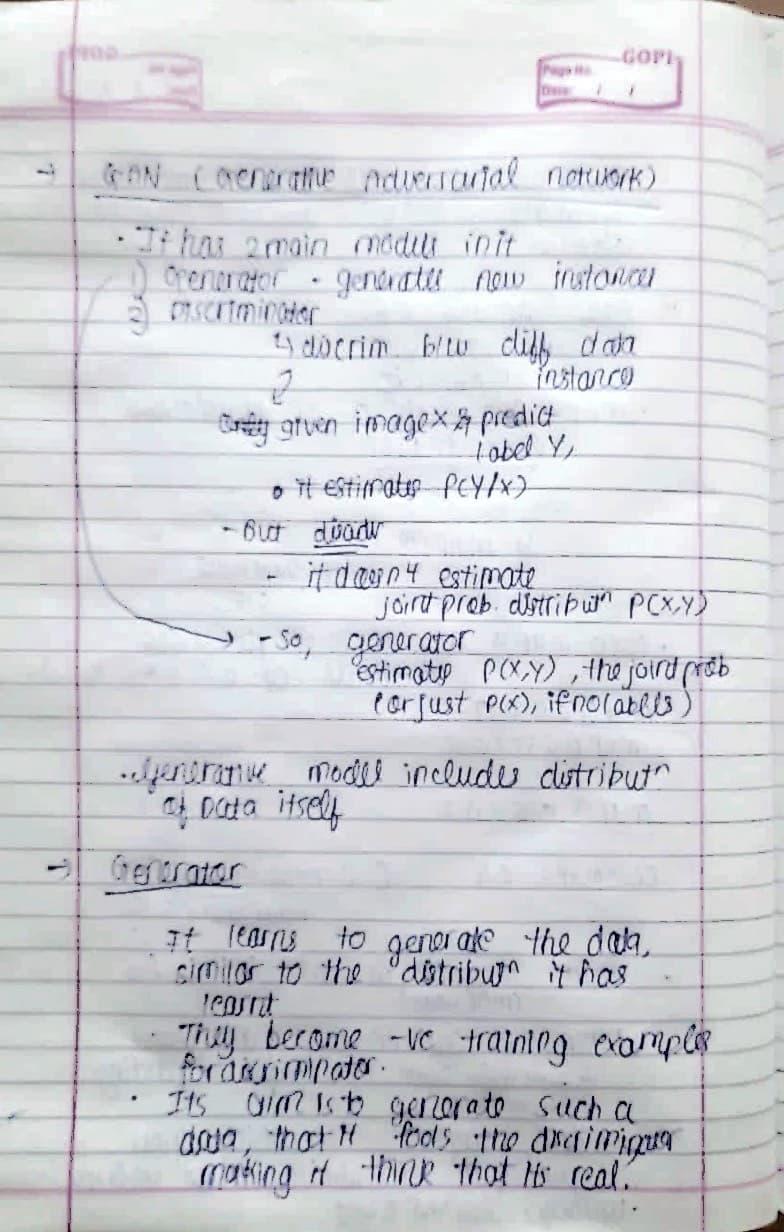 GOPI
Page No.
Date: / /
→ GAN (Generative Adversarial network)
· It has 2 main models in it
1) Generator - generates new instances
2) Discriminator
↳ discrim b/w diff data
instance
given image X & predict
label Y,
• it estimates P(Y/X)
- But
- it doesn't estimate
joint prob. distribuⁿ P(X,Y)
→ - So, generator
estimates P(X,Y), the joint prob
(or just P(X), if no labels)
· Generative model includes distributⁿ
of Data itself
→ Generator
It learns to generate the data,
similar to the distribuⁿ it has
learnt
· They become -ve training examples
for discriminator.
· Its aim is to generate such a
data, that it fools the discriminator
making it think that its real.